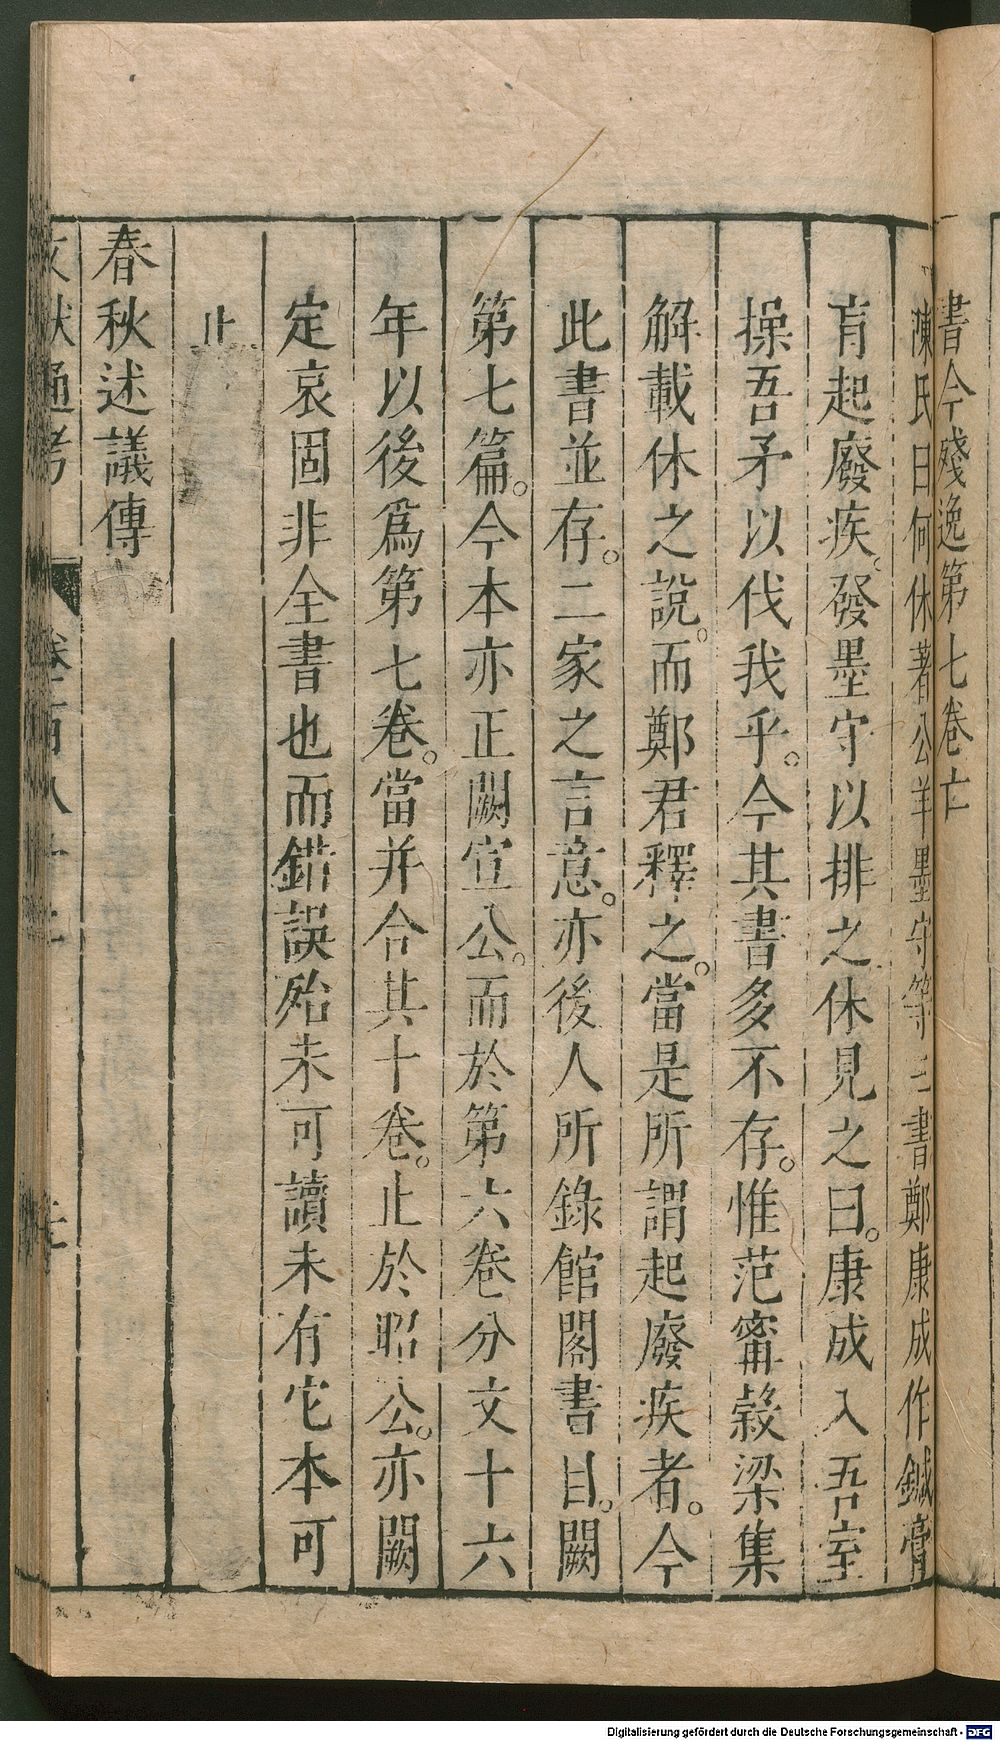 書今殘逸第七卷亡
陳氏曰何休著公羊墨守等三書鄭康成作鍼膏
肓起廢疾。發墨守以排之休見之曰。康成入吾室
操吾矛以伐我乎。今其書多不存。惟范甯穀梁集
解載休之說。而鄭君釋之。當是所謂起廢疾者。今
此書並存。二家之言意。亦後人所錄館閣書目。闕
第七篇。今本亦正闕宣公。而於第六卷分文十六
年以後爲第七卷。當并合其十卷。止於昭公。亦闕
定哀固非全書也而錯誤殆未可讀未有它本可
止
春秋述議傳
文獻通考 卷一百八十二
Digitalisierung gefördert durch die Deutsche Forschungsgemeinschaft - DFG